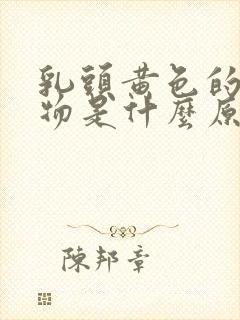 乳頭黃色的
物是什麼原
陳邦章